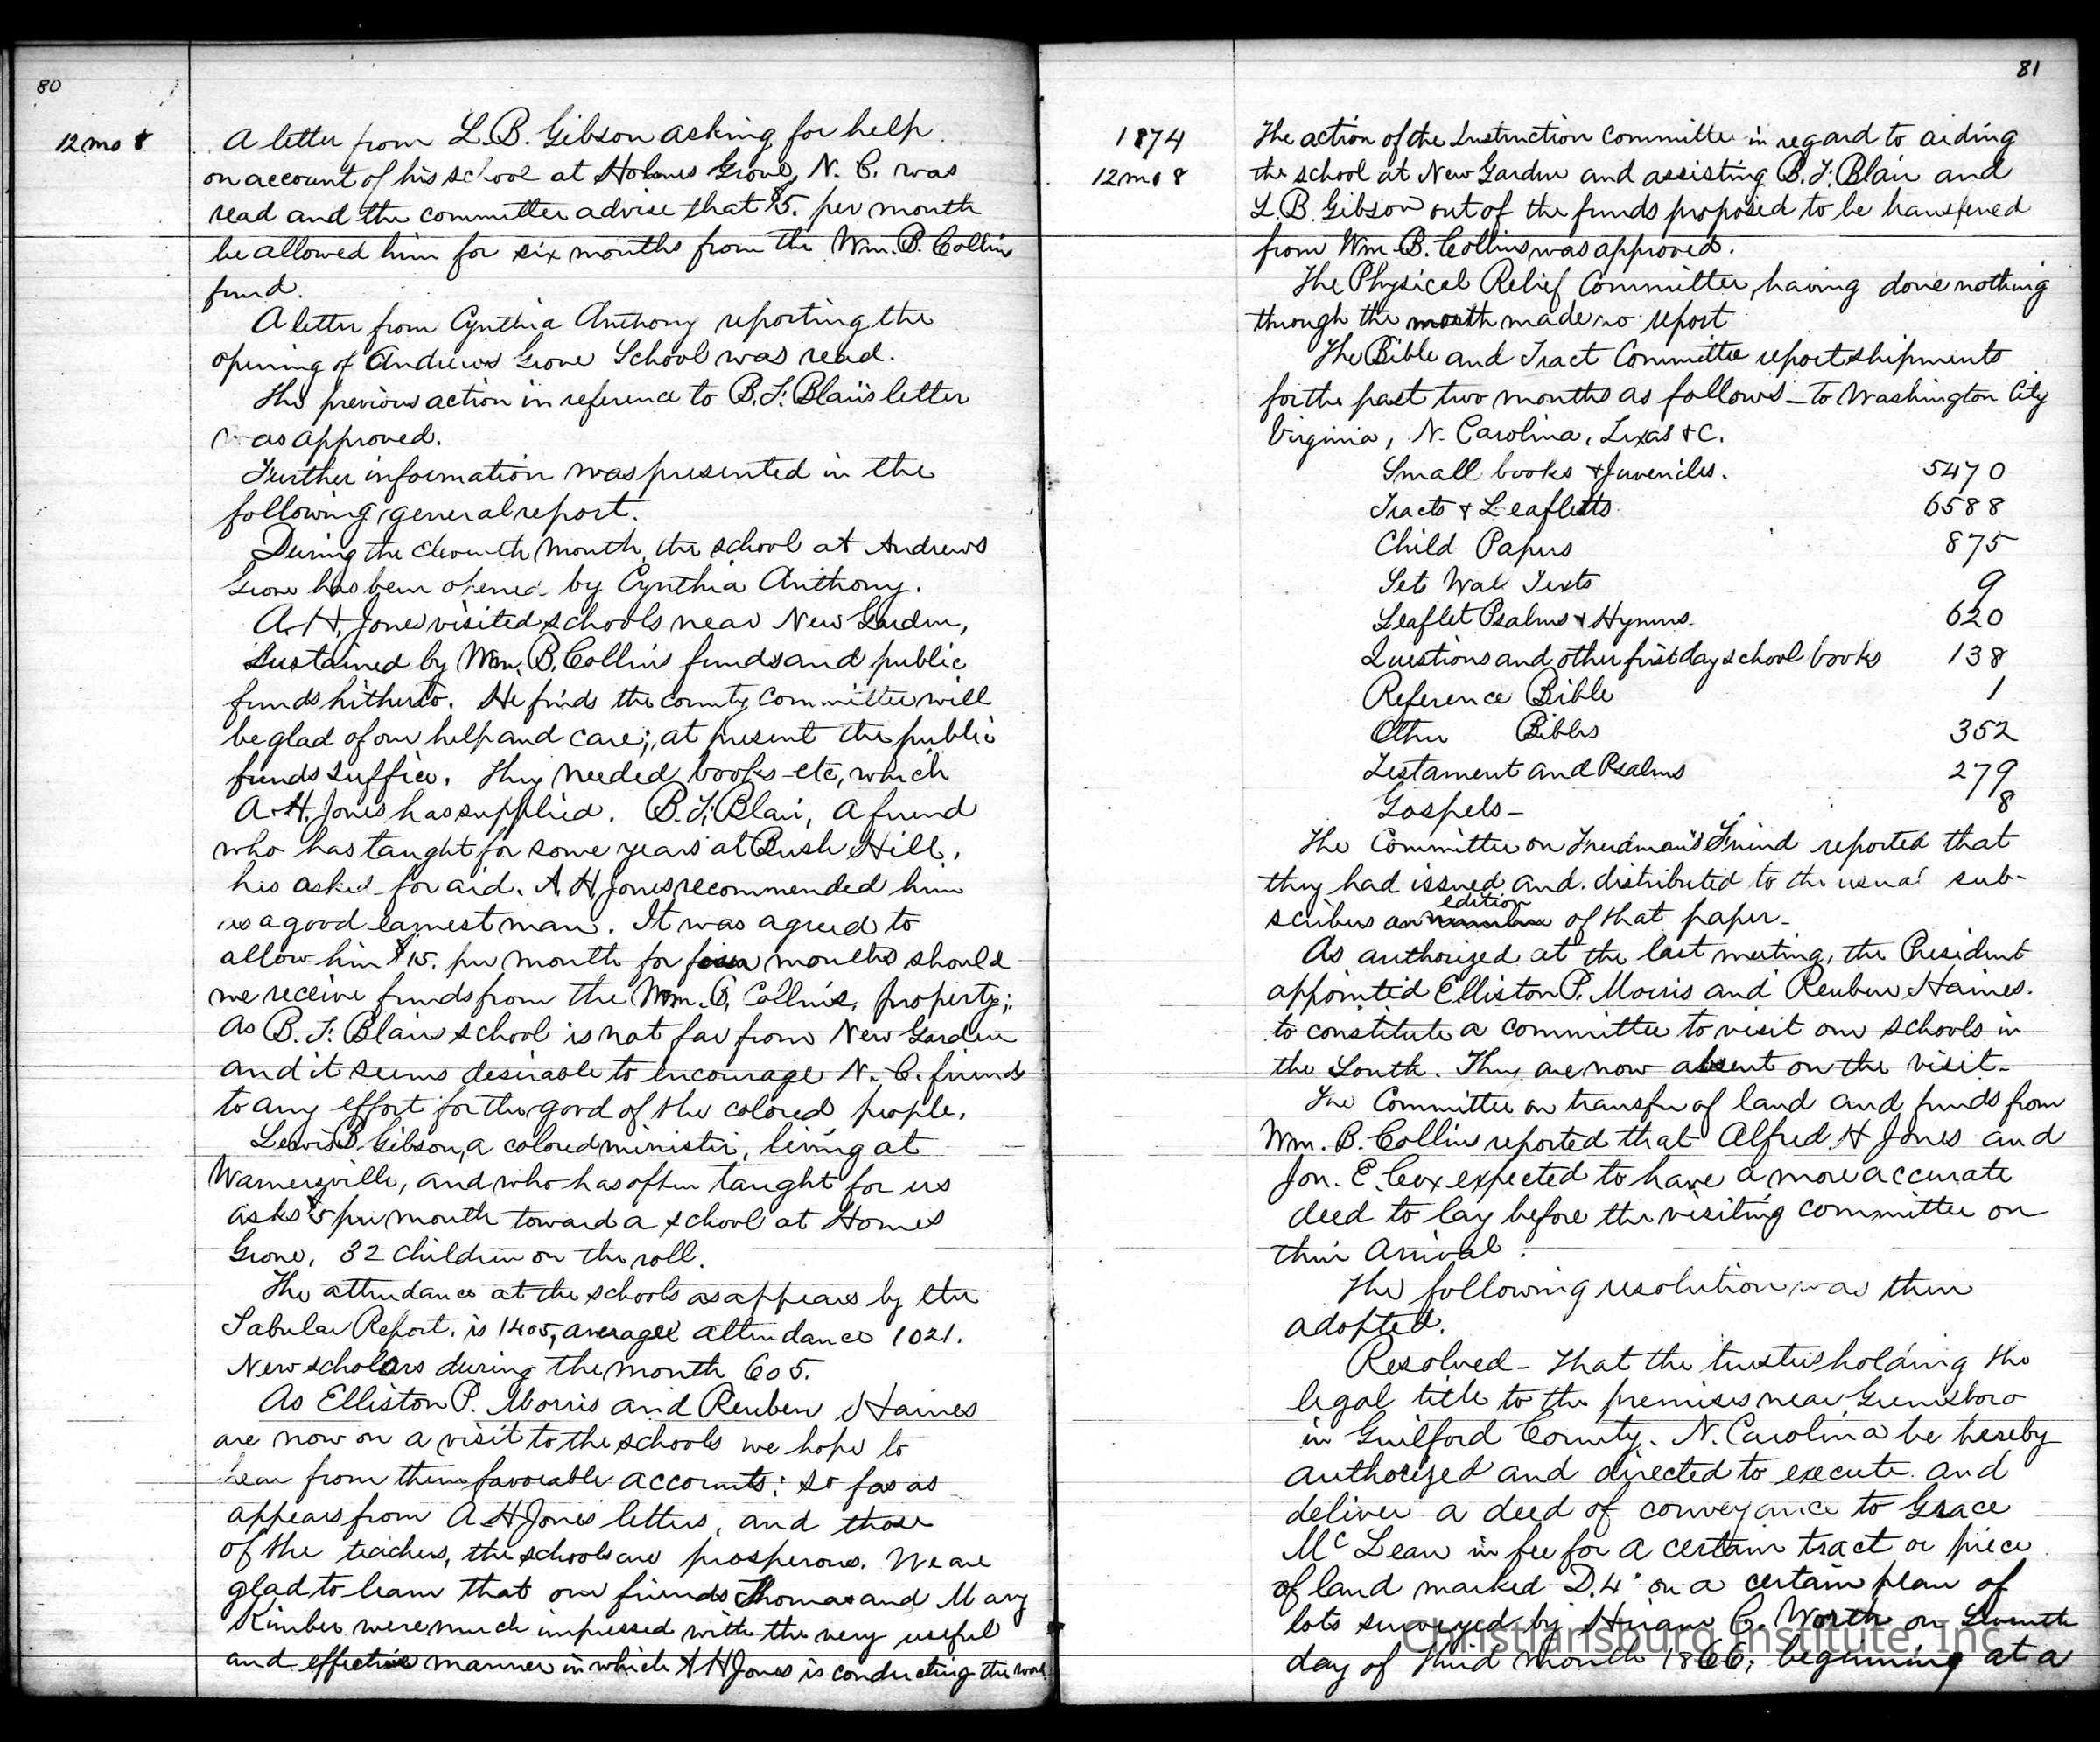 80
12 mo 8
A letter from L. B. Gibson asking for help
on account of his school at Holmes Grove, N. C. was
read and the committee advise that $5. per month
be allowed him for six months from the Wm. B. Collins
fund.
A letter from Cynthia Anthony reporting the
opening of Andrews Grove School was read.
The previous action in reference to B. F. Blair's letter
was approved.
Further information was presented in the
following general report.
During the eleventh month, the school at Andrews
Grove has been opened by Cynthia Anthony.
A. H. Jones visited schools near New Garden,
sustained by Wm. B. Collins funds and public
funds hitherto. He finds the county committee will
be glad of our help and care; at present the public
funds suffice. They needed books etc, which
A. H. Jones has supplied. B. F. Blair, a friend
who has taught for some years at Bush Hill,
has asked for aid. A H Jones recommended him
as a good earnest man. It was agreed to
allow him $15. per month for months should
we receive funds from the Wm. B. Collins, property;
as B. F. Blairs school is not far from New Garden
and it seems desirable to encourage N. C. friends
to any effort for the good of the colored people.
Lewis B Gibson, a colored minister, living at
Warnersville, and who has often taught for us
asks $5 per month toward a school at Homes
Grove, 32 children on the roll.
The attendance at the schools as appears by the
Tabular Report. is 1405, average attendance 1021.
New scholars during the month 605.
As Elliston P. Morris and Reuben Haines
are now on a visit to the schools we hope to
hear from them favorable accounts: so far as
appears from A H Jones letters, and those
of the teachers, the schools are prosperous. We are
glad to learn that our friends Thomas and Mary
Kimber were much impressed with the very useful
and effective manner in which A H Jones is conducting the work
81
1874
12 mo 8
The action of the Instruction Committee in regard to aiding
the school at New Garden and assisting B. F. Blair and
L. B. Gibson out of the funds proposed to be transferred
from Wm. B. Collins was approved.
The Physical Relief Committee, having done nothing
through the month made no report
The Bible and Tract Committee report shipments
for the past two months as follows - to Washington City
Virginia, N. Carolina, Texas &c.
Small books & Juveniles. 5470
Tracts & Leafletts 6588
Child Papers 875
Sets Wall Texts 9
Leaflet Psalms & Hymns 620
Questions and other first day school books 138
Reference Bible 1
Other Bibles 352
Testament and Psalms 279
Gospels - 8
The Committee on Freedman's Friend reported that
they had issued and distributed to the usual sub-
scribers an edition of that paper -
As authorized at the last meeting, the President
appointed Elliston P. Morris and Reuben Haines.
to constitute a committee to visit our schools in
the South. They are now absent on the visit -
The Committee on transfer of land and funds from
Wm. B. Collins reported that Alfred H Jones and
Jon. E. Cox expected to have a more accurate
deed to lay before the visiting committee on
their arrival.
The following resolution was then
adopted.
Resolved - That the trustees holding the
legal title to the premises near Greensboro
in Guilford County, N. Carolina be hereby
authorized and directed to execute and
deliver a deed of conveyance to Grace
McLean in fee for a certain tract or piece
of land marked D. 4 on a certain plan of
lots surveyed by Hiram C. Worth on Seventh
day of Third month 1866; beginning at a
Christiansburg Institute, Inc.